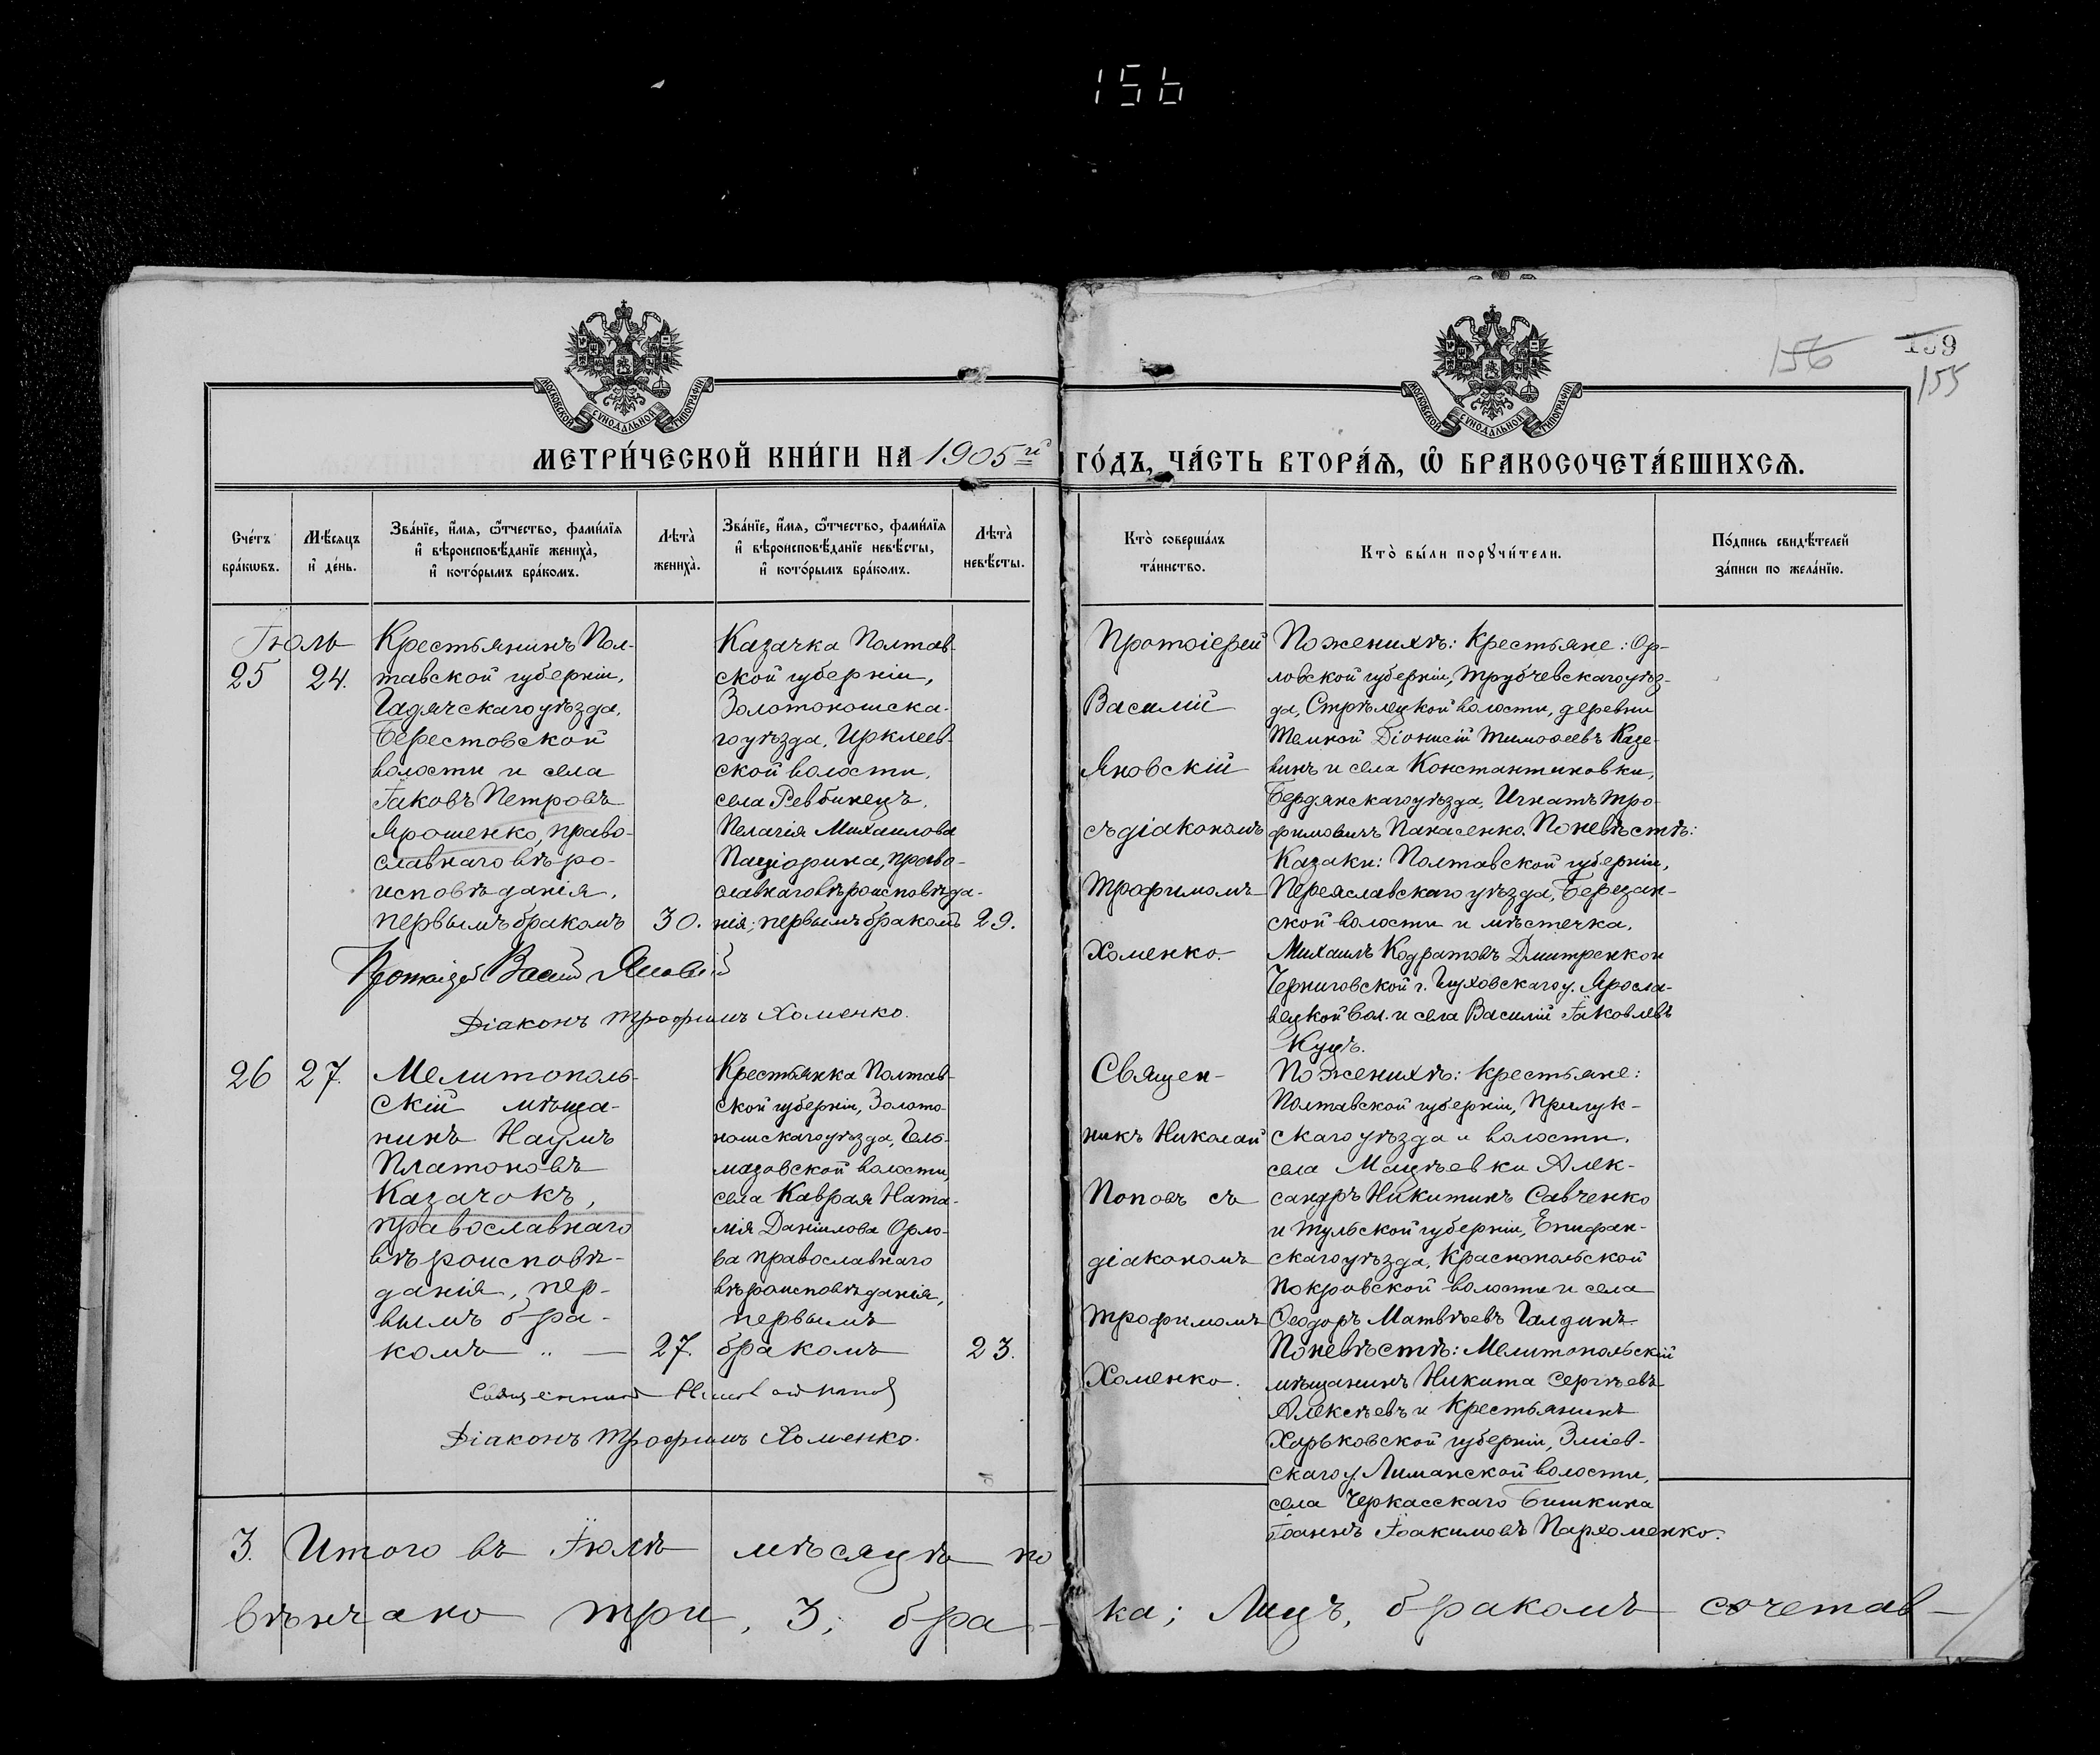 156
156
159
155
МОСКОВСКОЙ СѴНОДАЛЬНОЙ ТИПОГРАФІИ
МОСКОВСКОЙ СѴНОДАЛЬНОЙ ТИПОГРАФІИ
МЕТРИ́ЧЕСКОЙ КНИ́ГИ НА 1905й ГО́ДЪ, ЧА́СТЬ ВТОРА́Ѧ, Ѡ҆ БРАКОСОЧЕТА́ВШИХСѦ.
Сче́тъ бра́кѡвъ.
Мѣ́сяцъ и҆ де́нь.
Зва́нїе, и҆́мя, ѻ҆́тчество, фами́лїя и҆ вѣроисповѣ́данїе жениха̀, и҆ кото́рымъ бра́комъ.
Лѣта̀ жениха̀.
Зва́нїе, и҆́мя, ѻ҆́тчество, фами́лїя и҆ вѣроисповѣ́данїе невѣ́сты, и҆ кото́рымъ бра́комъ.
Лѣта̀ невѣ́сты.
Кто̀ соверша́лъ та́инство.
Кто̀ бы́ли порꙋчи́тели.
По́дпись свидѣ́телей за́писи по жела́нїю.
Іюль
25 24.
Крестьянинъ Пол-
тавской губерніи,
Гадячскаго уѣзда,
Берестовской
волости и села
Іаковъ Петровъ
Ярошенко, право-
славнаго вѣро-
исповѣданія,
первымъ бракомъ
30.
Казачка Полтав-
ской губерніи,
Золотоношска-
го уѣзда, Ирклеев-
ской волости,
села Ревбинецъ,
Пелагія Михаилова
Пацюрина, право-
славнаго вѣроисповѣда-
нія; первымъ бракомъ
29.
Протоіерей
Василій
Яновскій
съ діакономъ
Трофимомъ
Хоменко.
По женихѣ: Крестьяне: Ор-
ловской губерніи, Трубчевскаго уѣз-
да, Стрѣлецкой волости, деревни
Темной Діонисій Тимофеевъ Казе-
винъ и села Константиновки,
Бердянскаго уѣзда, Игнатъ Тро-
фимовичъ Панасенко. По невѣстѣ:
Казаки: Полтавской губерніи,
Переяславскаго уѣзда, Березан-
ской волости и мѣстечка,
Михаилъ Кодратовъ Дмитренко и
Черниговской г. Глуховскаго у. Яросла-
вецкой вол. и села Василій Іаковлевъ
Куцъ.
Протоіерей Василій Яновскій
Діаконъ Трофимъ Хоменко.
26 27.
Мелитополь-
скій мѣща-
нинъ Наумъ
Платоновъ
Казачокъ,
православнаго
вѣроисповѣ-
данія, пер-
вымъ бра-
комъ „ —
27.
Крестьянка Полтав-
ской губерніи, Золото-
ношскаго уѣзда, Гель-
мазовской волости,
села Каврая Ната-
лія Даніилова Орло-
ва православнаго
вѣроисповѣданія,
первымъ
бракомъ
23.
Священ-
никъ Николай
Поповъ съ
діакономъ
Трофимомъ
Хоменко.
По женихѣ: крестьяне:
Полтавской губерніи, Прилук-
скаго уѣзда и волости,
села Мацѣевки Алек-
сандръ Никитинъ Савченко
и Тульской губерніи, Епифан-
скаго уѣзда, Краснопольской
Покровской волости и села
Ѳеодоръ Матвѣевъ Галдинъ
По невѣстѣ: Мелитопольскій
мѣщанинъ Никита Сергѣевъ
Алексѣевъ и Крестьянинъ
Харьковской губерніи, Зміев-
скаго у. Лиманской волости,
села Черкасскаго Бишкина
Іоаннъ Іоакимовъ Пархоменко.
Священникъ Николай Поповъ
Діаконъ Трофимъ Хоменко.
3. Итого въ Іюлѣ мѣсяцѣ по
вѣнчано три, 3, бра- ка; Лицъ, бракомъ сочетав-